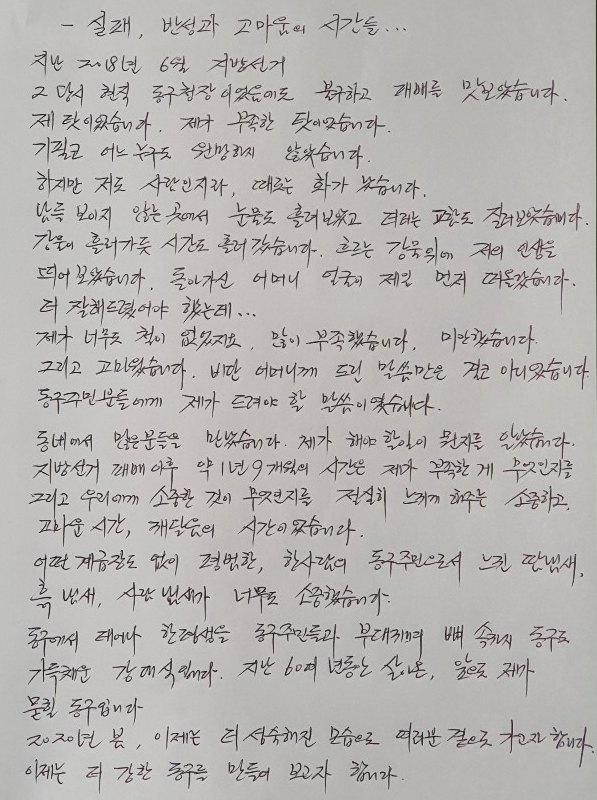 - 실패, 반성과 고마움의 시간들...
지난 2018년 6월 지방선거
그 당시 현직 동구청장이었음에도 불구하고 패배를 맛보았습니다.
제 탓이었습니다. 제가 부족한 탓이었습니다.
기필코 어느 누구도 원망하지 않았습니다.
하지만 저도 사람인지라, 때로는 화가 났습니다.
남들 보이지 않는 곳에서 눈물도 흘려보았고 때로는 고함도 질러보았습니다.
강물이 흘러가듯 시간도 흘러갔습니다. 흐르는 강물위에 저의 인생을
띄어보았습니다. 돌아가신 어머니 얼굴이 제일 먼저 떠올랐습니다.
더 잘해드렸어야 했는데...
제가 너무도 철이 없었지요, 많이 부족했습니다, 미안했습니다.
그리고 고마웠습니다. 비단 어머니께 드린 말씀만은 결코 아니었습니다
동구주민분들에게 제가 드려야 할 말씀이었습니다.
동네에서 많은분들을 만났습니다. 제가 해야 할일이 뭔지를 알았습니다.
지방선거 패배이후 약 1년 9개월의 시간은 제가 부족한 게 무엇인지를
그리고 우리에게 소중한 것이 무엇인지를 절실히 느끼게 해주는 소중하고,
고마운 시간, 깨달음의 시간이었습니다.
어떤 계급장도 없이 평범한, 한사람의 동구주민으로서 느낀 땀냄새,
흙 냄새, 사람 냄새가 너무도 소중했습니다.
동구에서 태어나 한평생을 동구주민들과 부대끼며 뼈 속까지 동구로
가득채운 강대식입니다. 지난 60여 년동안 살아온, 앞으로 제가
묻힐 동구입니다
2020년 봄, 이제는 더 성숙해진 모습으로 여러분 곁으로 가고자 합니다.
이제는 더 강한 동구를 만들어 보고자 합니다.